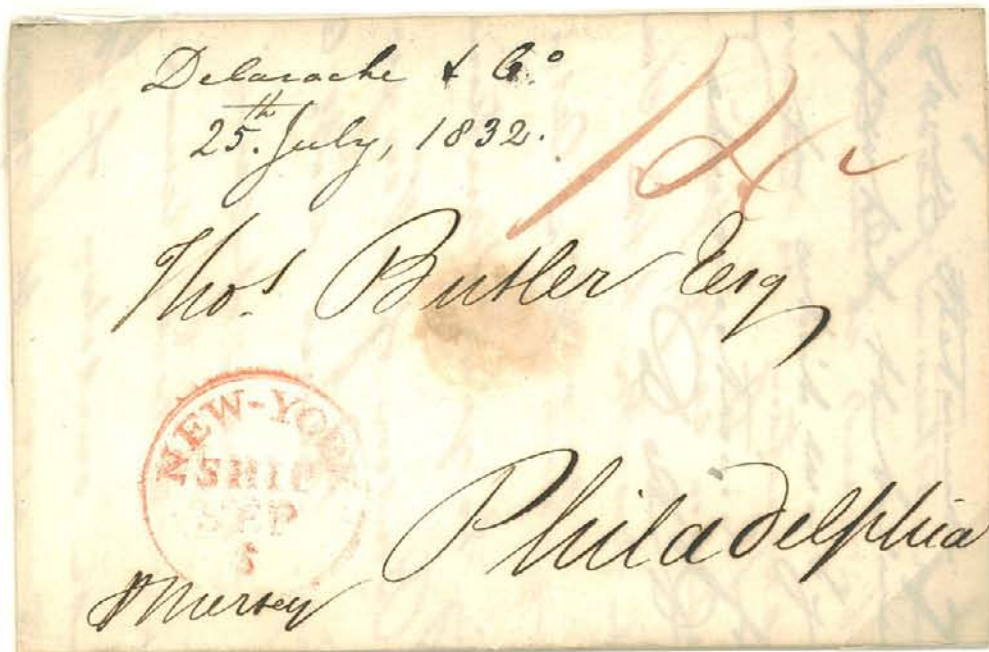 Delaroche & Co.
25th. July, 1832.
Thos. Butler Esq
NEW-YORK
SHIP
SEP
Philadelphia
Mersey